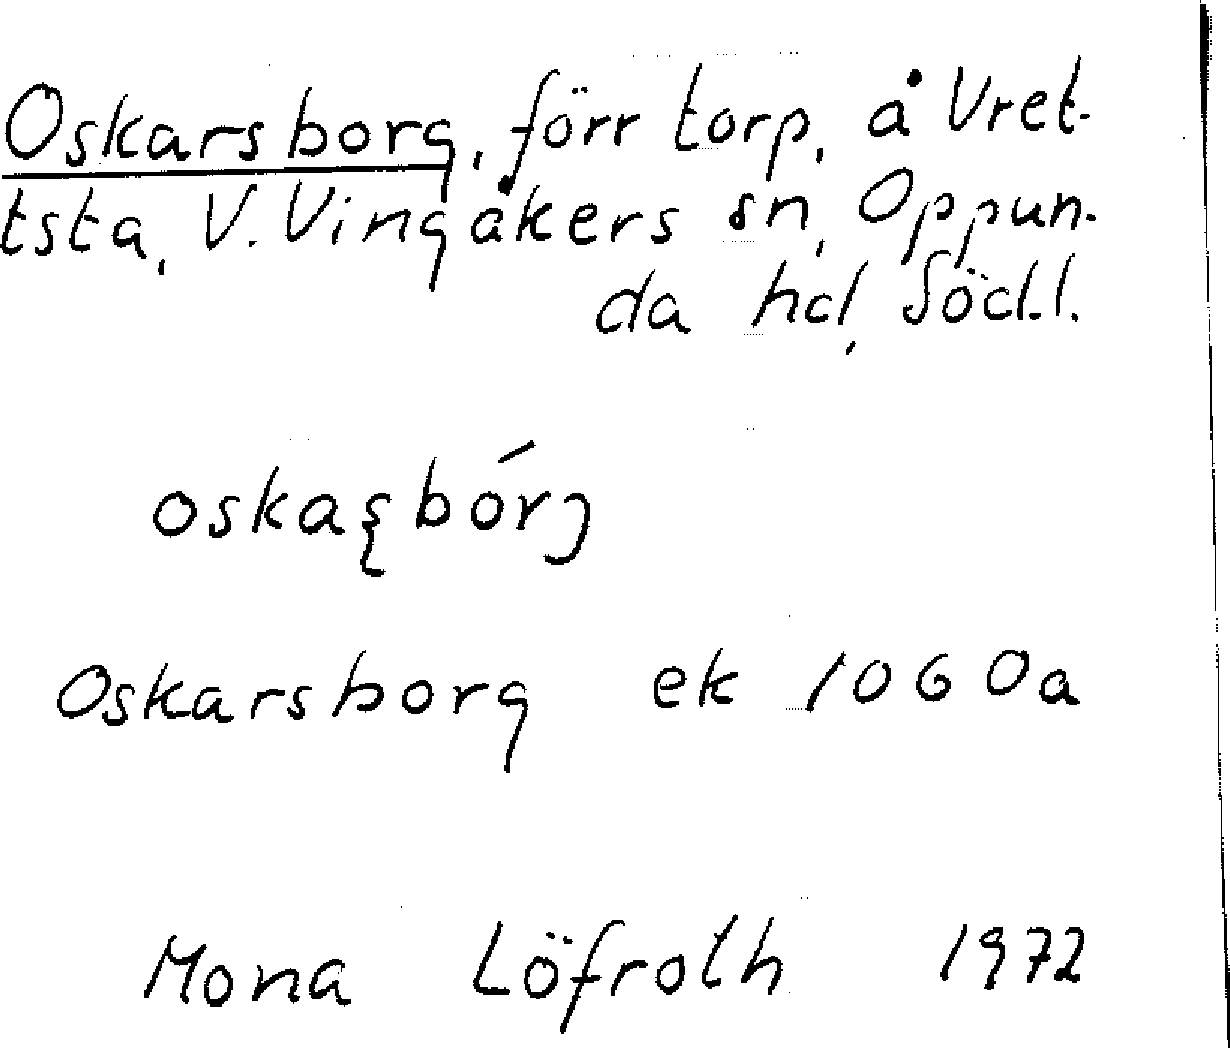 Oskarsborg, förr torp, å Vret-
tsta, V. Vingåkers sn, Oppun-
da hd, Södl.l.
oskaʂbórj
Oskarsborg ek 1060a
Mona Löfroth 1972